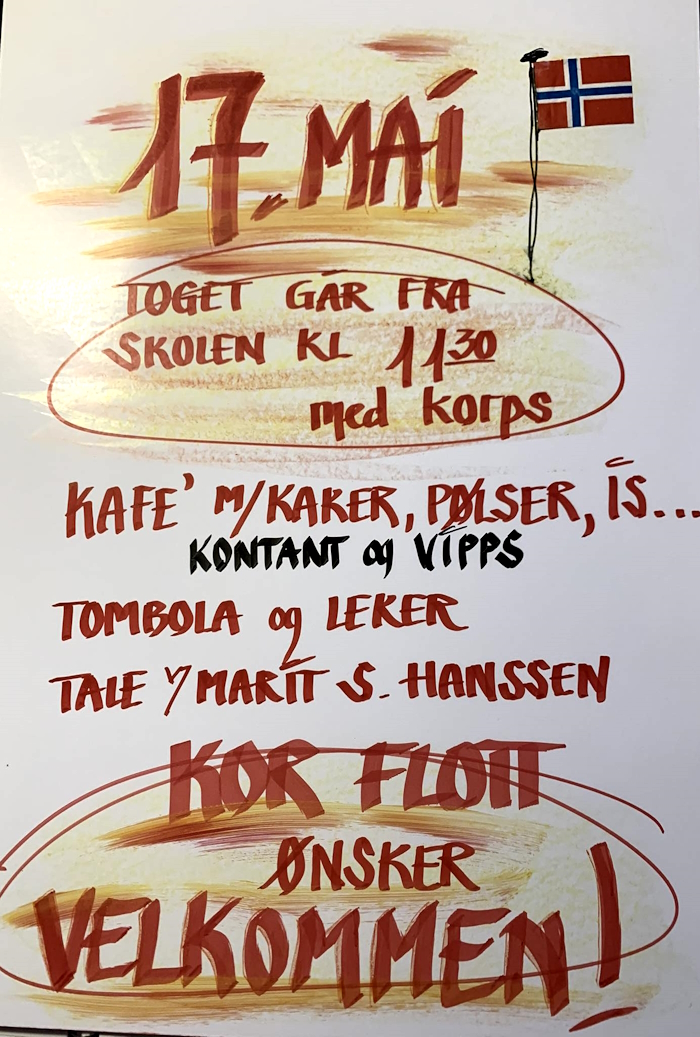 17. MAI
TOGET GÅR FRA
SKOLEN KL 11 30
med korps
KAFE' M/KAKER, PØLSER, IS...
KONTANT og VIPPS
TOMBOLA og LEKER
TALE V/ MARIT S. HANSSEN
KOR FLOTT
ØNSKER
VELKOMMEN!